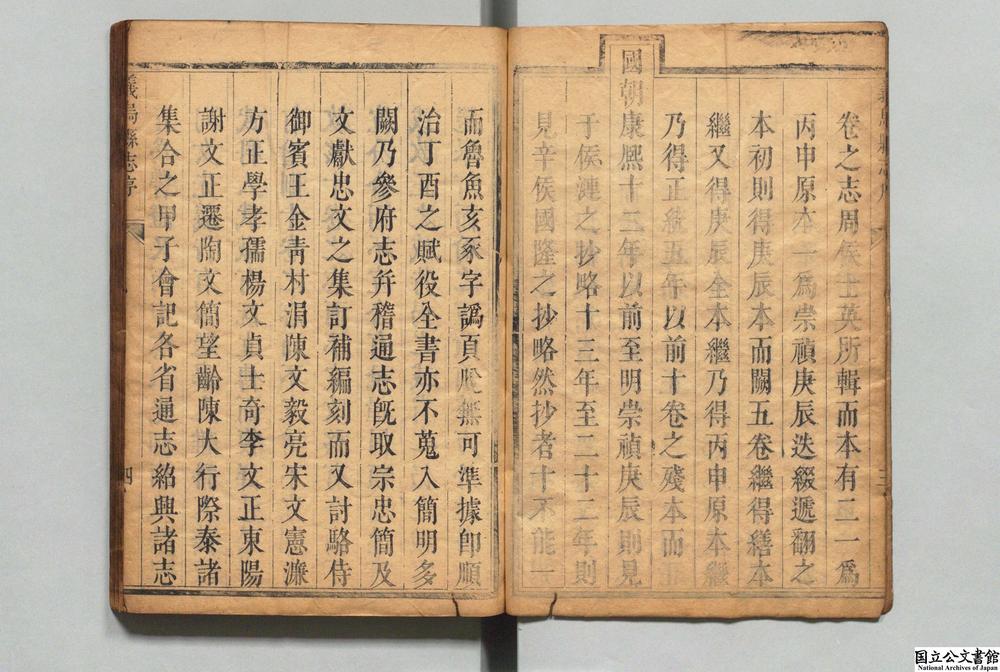 卷之志周侯士英所輯而本有二一爲
丙申原本一爲崇禎庚辰迭綴遞翻之
本初則得庚辰本而闕五卷繼得繕本
繼又得庚辰全本繼乃得丙申原本繼
乃得正統五年以前十卷之殘本而
國朝康熙十二年以前至明崇禎庚辰則見
于侯漣之抄略十三年至二十二年則
見辛侯國隆之抄略然抄者十不能一
而魯魚亥豕字譌頁脫無可準據卽順
治丁酉之賦役全書亦不蒐入簡明多
闕乃參府志幷稽通志旣取宗忠簡及
文獻忠文之集訂補編刻而又討駱侍
御賓王金青村涓陳文毅亮宋文憲濂
方正學孝孺楊文貞士奇李文正東陽
謝文正遷陶文簡望齡陳大行際泰諸
集合之甲子會記各省通志紹興諸志
義烏縣志序
四
国立公文書館
National Archives of Japan